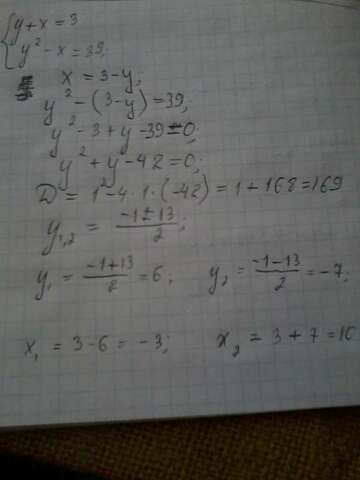 { y + x = 3
y² - x = 39;
x = 3 - y;
y² - (3 - y) = 39;
y² - 3 + y - 39 = 0;
y² + y - 42 = 0;
D = 1² - 4 · 1 · (-42) = 1 + 168 = 169
y₁,₂ = (-1 ± 13)/2;
y₁ = (-1 + 13)/2 = 6; y₂ = (-1 - 13)/2 = -7;
x₁ = 3 - 6 = -3; x₂ = 3 + 7 = 10